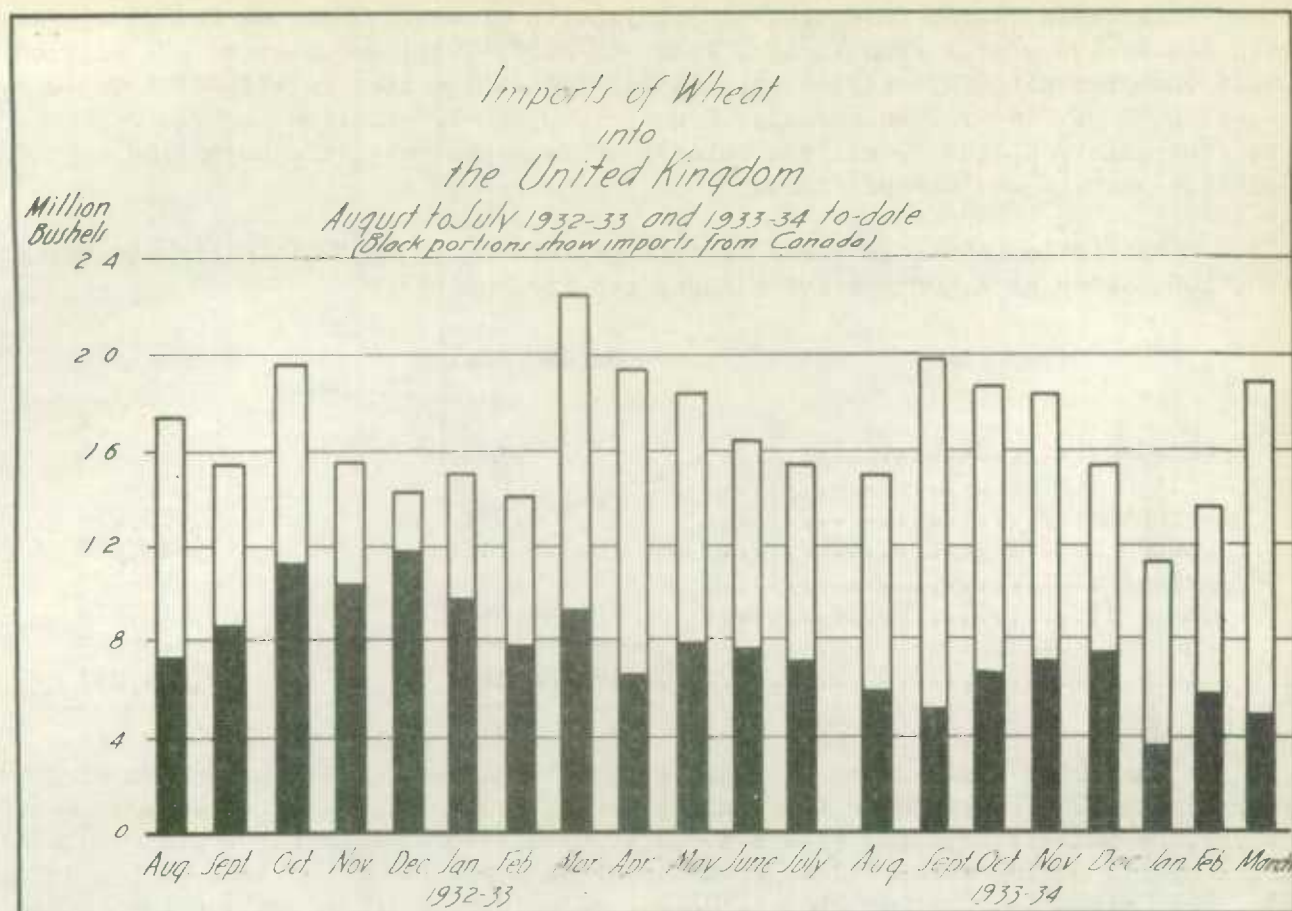 Imports of Wheat
into
the United Kingdom
August to July 1932-33 and 1933-34 to-date
(Black portions show imports from Canada)
Million
Bushels
24
20
16
12
8
4
0
Aug. Sept. Oct. Nov. Dec. Jan. Feb. Mar. Apr. May June July Aug. Sept. Oct. Nov. Dec. Jan. Feb. March
1932-33 1933-34